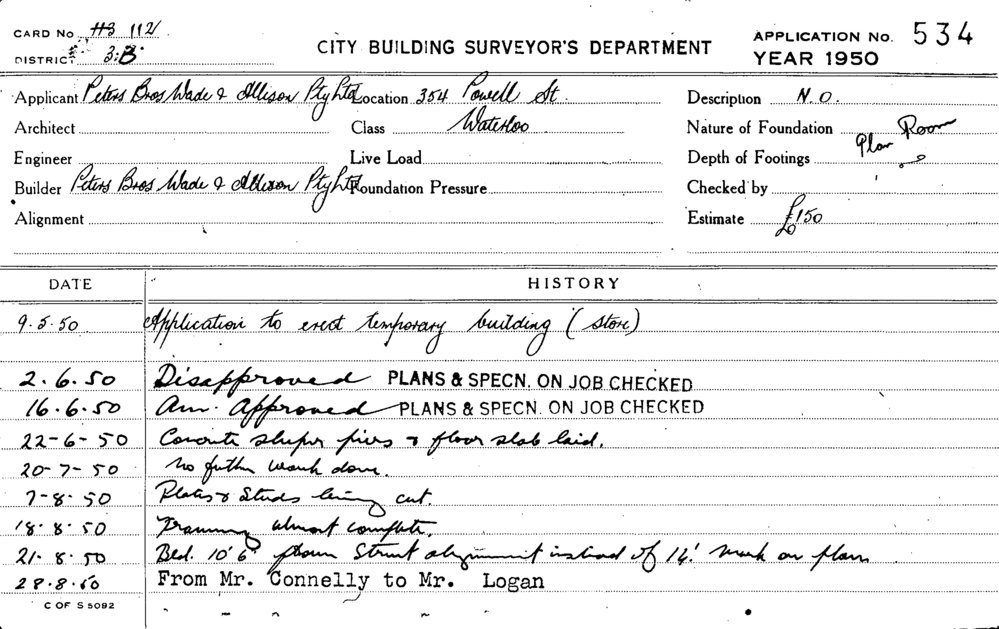 CARD No. H3 112
CITY BUILDING SURVEYOR'S DEPARTMENT
APPLICATION No. 534
DISTRICT 3.B.
YEAR 1950
Applicant Peters Bros Wade & Allison Pty Ltd Location 354 Powell St. Description N.O.
Architect Class Waterloo Nature of Foundation Plan Room
Engineer Live Load Depth of Footings
Builder Peters Bros Wade & Allison Pty Ltd Foundation Pressure Checked by
Alignment Estimate £150
DATE HISTORY
9.5.50 Application to erect temporary building (store)
2.6.50 Disapproved PLANS & SPECN. ON JOB CHECKED
16.6.50 Am. Approved PLANS & SPECN. ON JOB CHECKED
22-6-50 Concrete sleeper piers & floor slab laid.
20-7-50 No further work done.
7-8-50 Plates & Studs being cut.
18.8.50 Framing almost complete.
21.8.50 Bld. 10'6" from Street alignment instead of 14' mark on plan
28.8.50 From Mr. Connelly to Mr. Logan
C OF S 5092